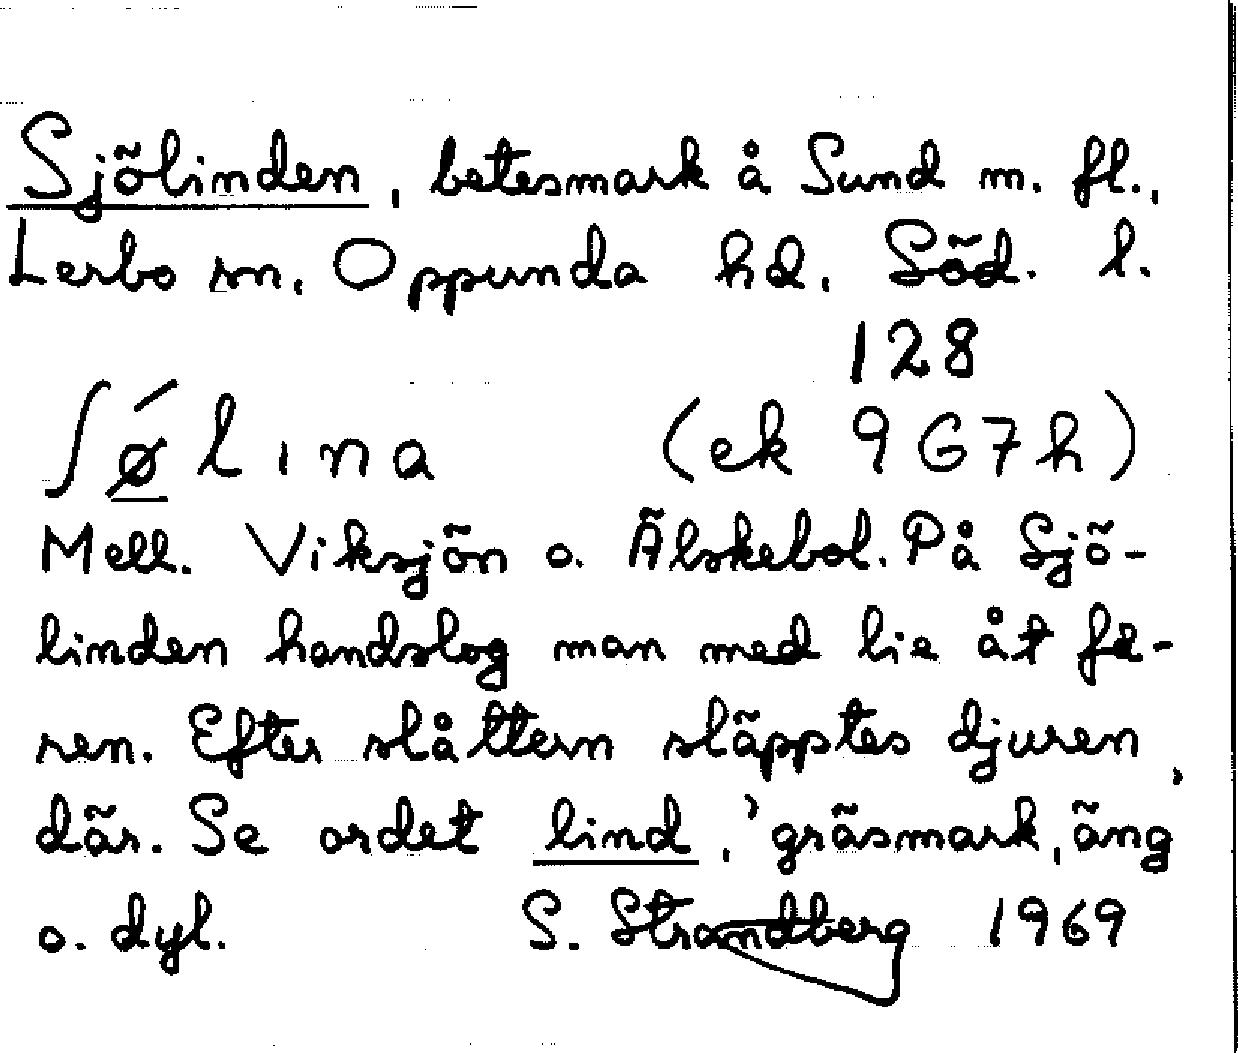 Sjölinden, betesmark å Sund m. fl.,
Lerbo sn, Oppunda hd, Söd. l.
128
ʃǿ̲lına (ek 9G7h)
Mell. Viksjön o. Älskebol. På Sjö-
linden handslog man med lie åt få-
ren. Efter slåttern släpptes djuren
där. Se ordet lind, 'gräsmark, äng
o. dyl.' S. Strandberg 1969